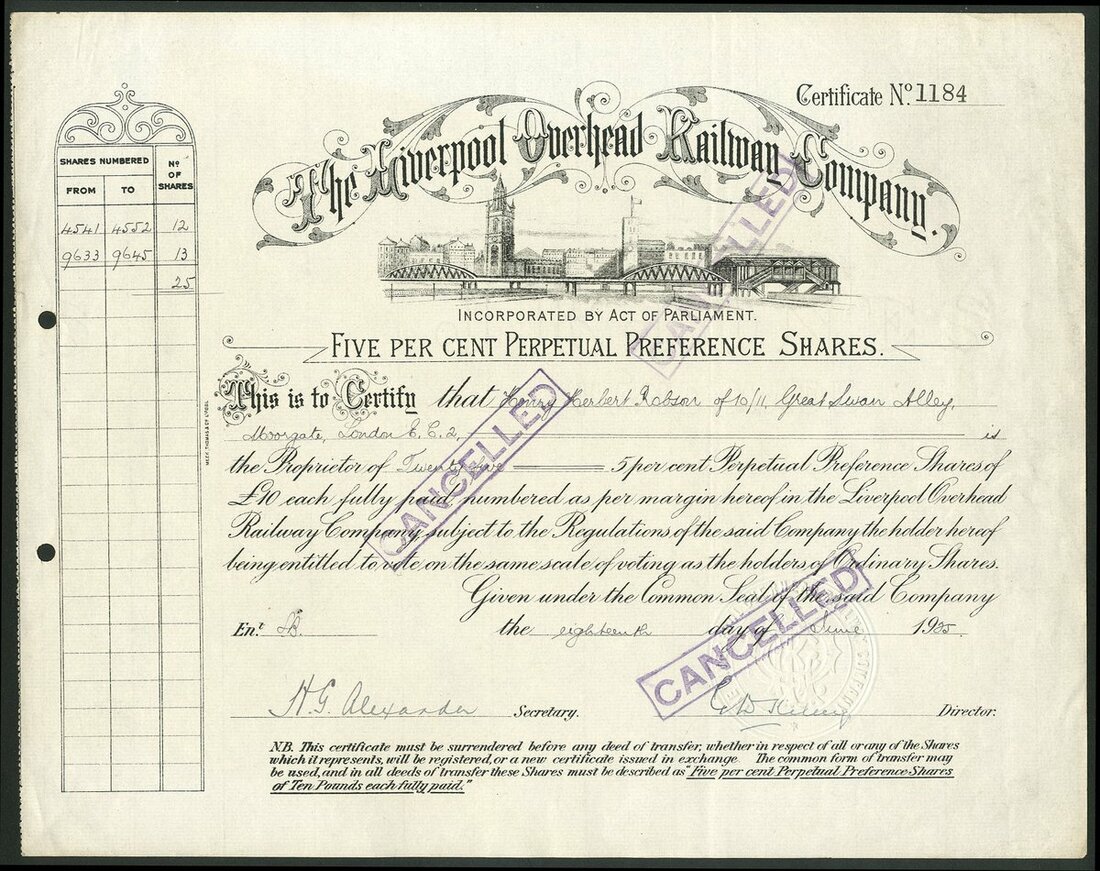 Certificate No. 1184
The Liverpool Overhead Railway Company.
INCORPORATED BY ACT OF PARLIAMENT.
FIVE PER CENT PERPETUAL PREFERENCE SHARES.
SHARES NUMBERED No OF SHARES
FROM TO
4541 4552 12
9633 9645 13
25
This is to Certify that Henry Herbert Robson of 10/11, Great Swan Alley,
Moorgate, London E.C.2, is
the Proprietor of Twenty five 5 per cent Perpetual Preference Shares of
£10 each fully paid, numbered as per margin hereof in the Liverpool Overhead
Railway Company subject to the Regulations of the said Company the holder hereof
being entitled to vote on the same scale of voting as the holders of Ordinary Shares.
Given under the Common Seal of the said Company
Ent.
the eighteenth day of June 1925.
H. G. Alexander Secretary.
Director.
N.B. This certificate must be surrendered before any deed of transfer, whether in respect of all or any of the Shares
which it represents, will be registered, or a new certificate issued in exchange. The common form of transfer may
be used, and in all deeds of transfer these Shares must be described as "Five per cent Perpetual Preference Shares
of Ten Pounds each fully paid."
CANCELLED
CANCELLED
CANCELLED